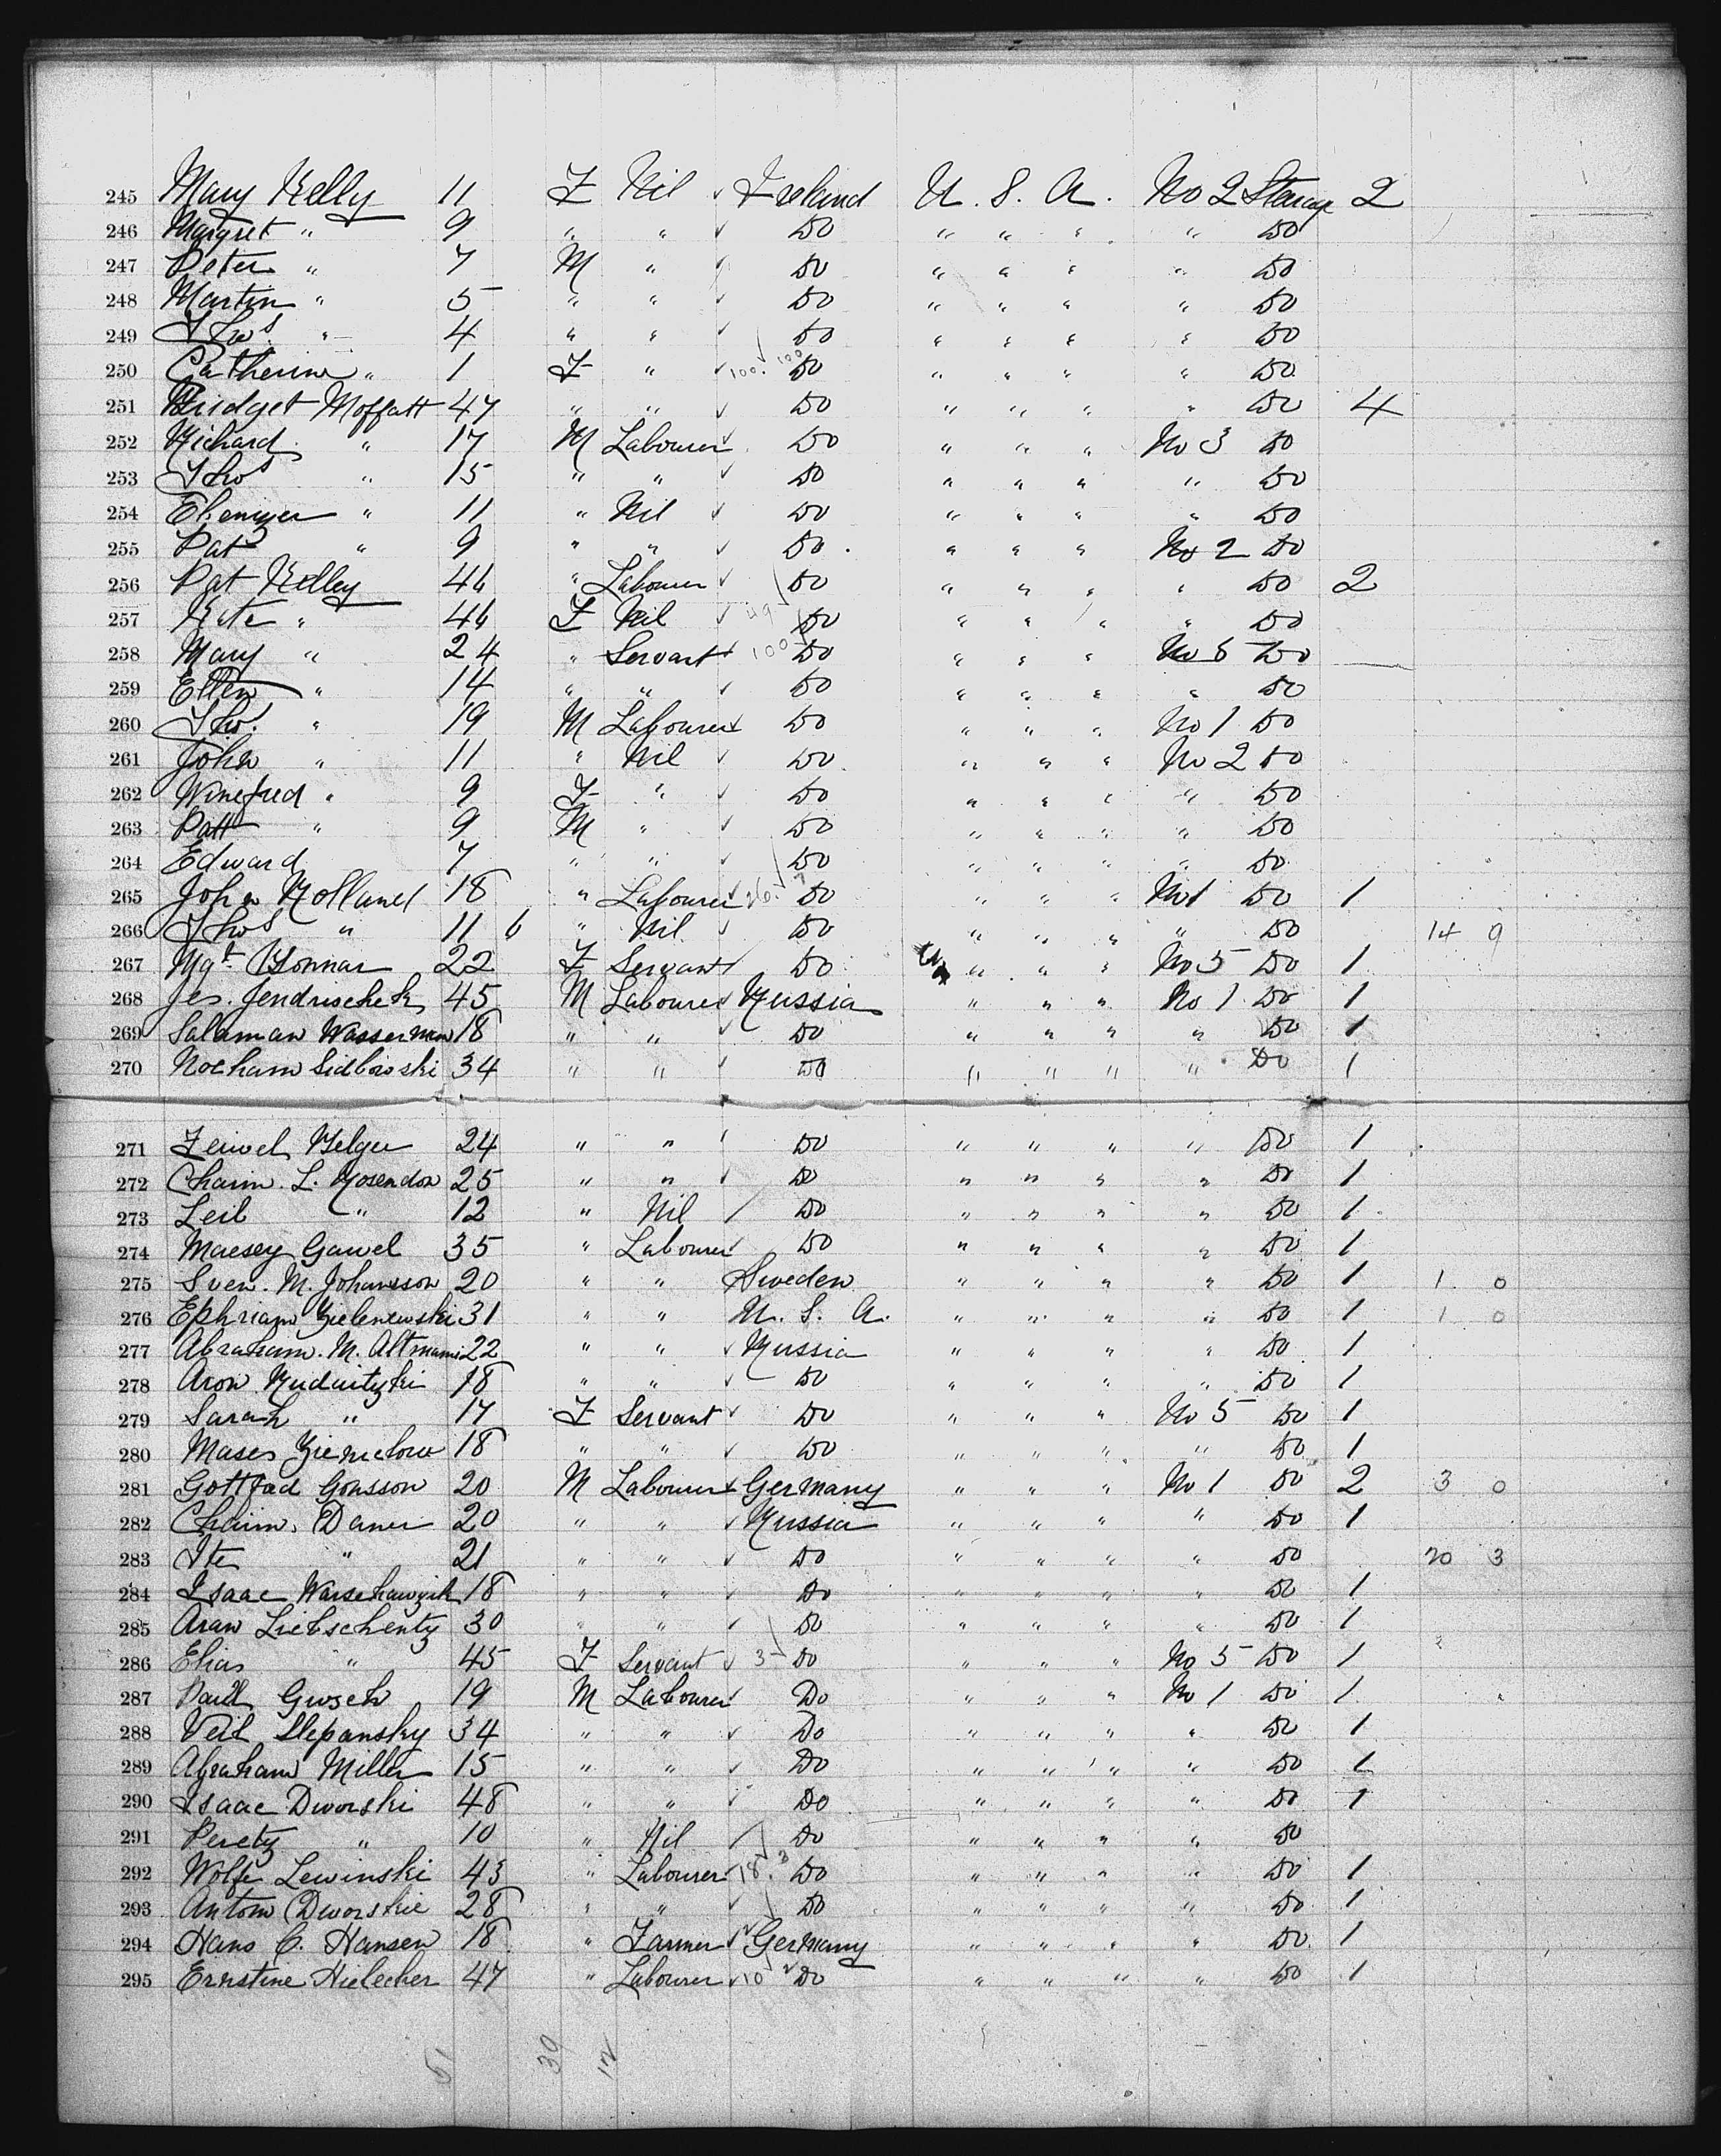 245 Mary Kelly 11 F Nil ✓ Ireland U. S. A. No 2 Sterage 2
246 Margret " 9 " " ✓ Do " " " " Do
247 Peter " 7 M " ✓ Do " " " " Do
248 Martin " 5 " " ✓ Do " " " " Do
249 Thos " 4 " " ✓ Do " " " " Do
250 Catherine " 1 F " ✓ 100. 100 Do " " " " Do
251 Bridget Moffatt 47 " " ✓ Do " " " " Do 4
252 Richard " 17 M Labourer ✓ Do " " " No 3 Do
253 Thos " 15 " " ✓ Do " " " " Do
254 Ebenizer " 11 " Nil ✓ Do " " " " Do
255 Pat " 9 " " ✓ Do " " " No 2 Do
256 Pat Kelley 46 " Labourer ✓ Do " " " " Do 2
257 Kate " 46 F Nil ✓ Do " " " " Do
258 Mary " 24 " Servant ✓ 100 Do " " " No 5 Do
259 Ellen " 14 " " ✓ Do " " " " Do
260 Thos. " 19 M Labourer ✓ Do " " " No 1 Do
261 John " 11 " Nil ✓ Do " " " No 2 Do
262 Winefred " 9 F " ✓ Do " " " " Do
263 Patt " 9 M " ✓ Do " " " " Do
264 Edward 7 " " ✓ Do " " " " Do
265 John Holland 18 " Labourer ✓ Do " " " No 1 Do 1
266 Thos " 11 6 " Nil ✓ Do " " " " Do 14 9
267 Mgt. Bonnar 22 F Servant ✓ Do " " " No 5 Do 1
268 Jes. Jendrischek 45 M Labourer ✓ Russia " " " No 1 Do 1
269 Salaman Wasserman 18 " " ✓ Do " " " " Do 1
270 Nocham Sidbowski 34 " " ✓ Do " " " " Do 1
271 Feiwel Belger 24 " " ✓ Do " " " " Do 1
272 Chaim. L. Rosendon 25 " " ✓ Do " " " " Do 1
273 Leib " 12 " Nil / Do " " " " Do 1
274 Maesey Gawel 35 " Labourer ✓ Do " " " " Do 1
275 Sven. M. Johansson 20 " " Sweden " " " " Do 1 1 0
276 Ephriam Zielenewski 31 " " U. S. A. " " " " Do 1 1 0
277 Abraham. M. Altmann 22 " " ✓ Russia " " " " Do 1
278 Aron Rudaitzki 18 " " ✓ Do " " " " Do 1
279 Sarah " 17 F Servant ✓ Do " " " No 5 Do 1
280 Mases Ziemelow 18 " " ✓ Do " " " " Do 1
281 Gottfad Gonsson 20 M Labourer ✓ Germany " " " No 1 Do 2 3 0
282 Chaim. Daner 20 " " ✓ Russia " " " " Do 1
283 Ite " 21 " " ✓ Do " " " " Do 20 3
284 Isaac Warschawzik 18 " " ✓ Do " " " " Do 1
285 Aran Liebschentz 30 " " ✓ Do " " " " Do 1
286 Elias " 45 F Servant ✓ 3 Do " " " No 5 Do 1
287 Paul Gwseh 19 M Labourer ✓ Do " " " No 1 Do 1
288 Veil Slepansky 34 " " ✓ Do " " " " Do 1
289 Abraham Miller 15 " " ✓ Do " " " " Do 1
290 Isaac Dworski 48 " " ✓ Do " " " " Do 1
291 Peretz " 10 " Nil / Do " " " " Do
292 Wolfe Lewinski 43 " Labourer 18. 3 Do " " " " Do 1
293 Antom Dworskie 28 " " ✓ Do " " " " Do 1
294 Hans C. Hansen 18 " Farmer ✓ Germany " " " " Do 1
295 Ernstine Hielecher 47 " Labourer ✓ 10 Do " " " " Do 1
51 39 12